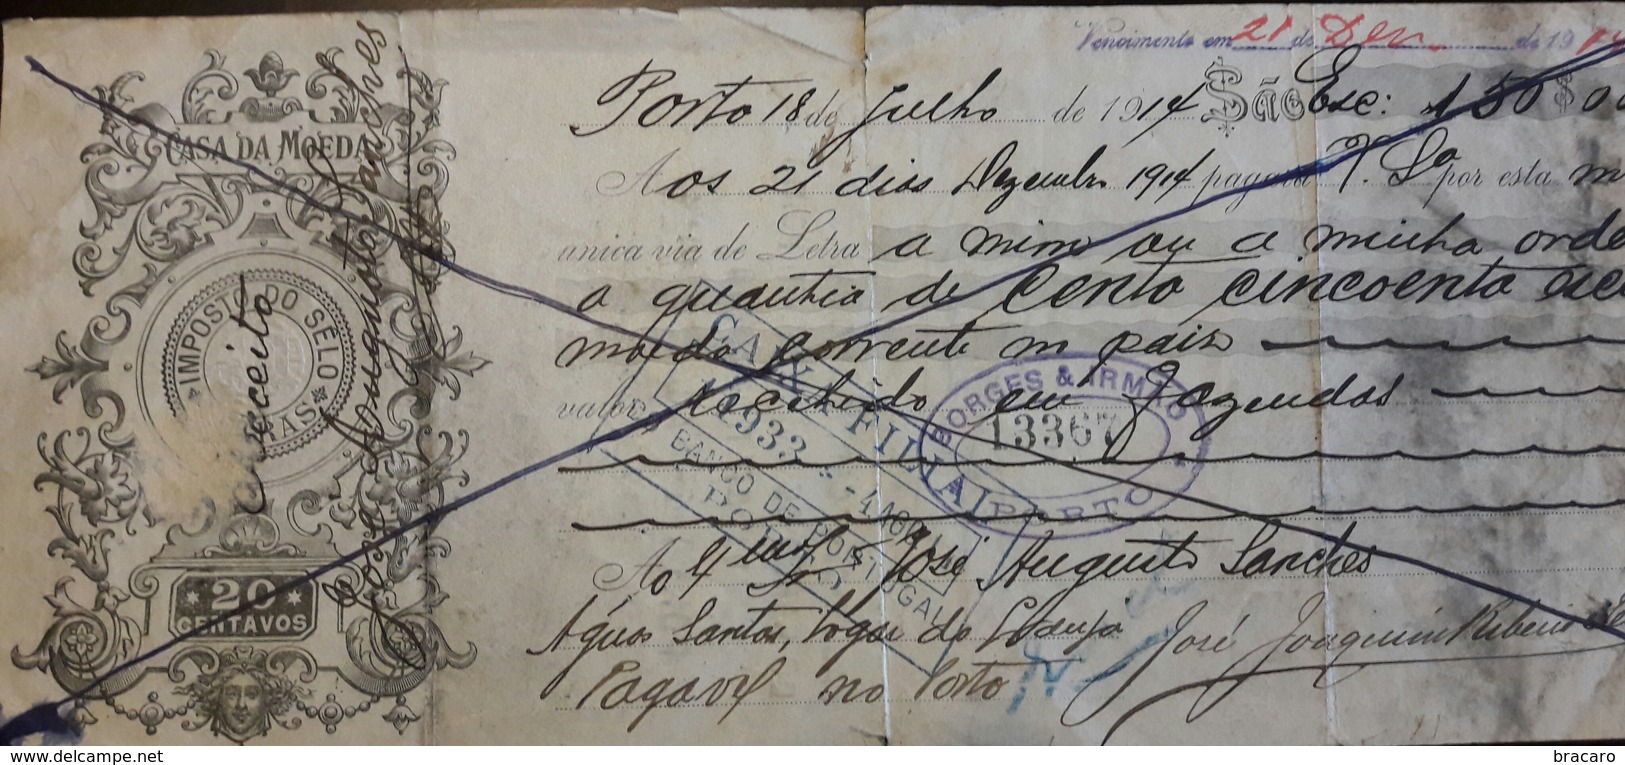 Vencimento em 21 de Dez de 1914
Porto 18 de Julho de 1914 São Esc: 150$00
Aos 21 dias Dezembro 1914 pagará V. Sª por esta
unica via de Letra a mim ou a minha orde
a quantia de cento cincoenta esc
moeda corrente no paiz
valor recebido em fazendas
Ao Illmo Sr José Augusto Sanches
Aguas Santas, logar do
Pagavel no Porto
José Joaquim Ribeiro
CASA DA MOEDA
IMPOSTO DO SELO
LETRAS
20
CENTAVOS
Acceito
José Augusto Sanches
BORGES & IRMÃO
13367
PORTO
CAIXA FILIAL
1933 - 4 AGO
BANCO DE PORTUGAL
PORTO
bracaro